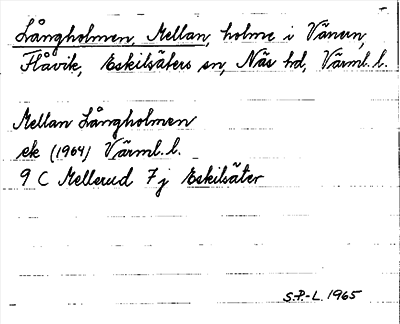 Långholmen, Mellan, holme i Vänern,
Flåvik, Eskilsäters sn, Näs hd, Värml. l.
Mellan Långholmen
ek (1964) Värml. l.
9 C Mellerud 7j Eskilsäter
S.P.-L. 1965